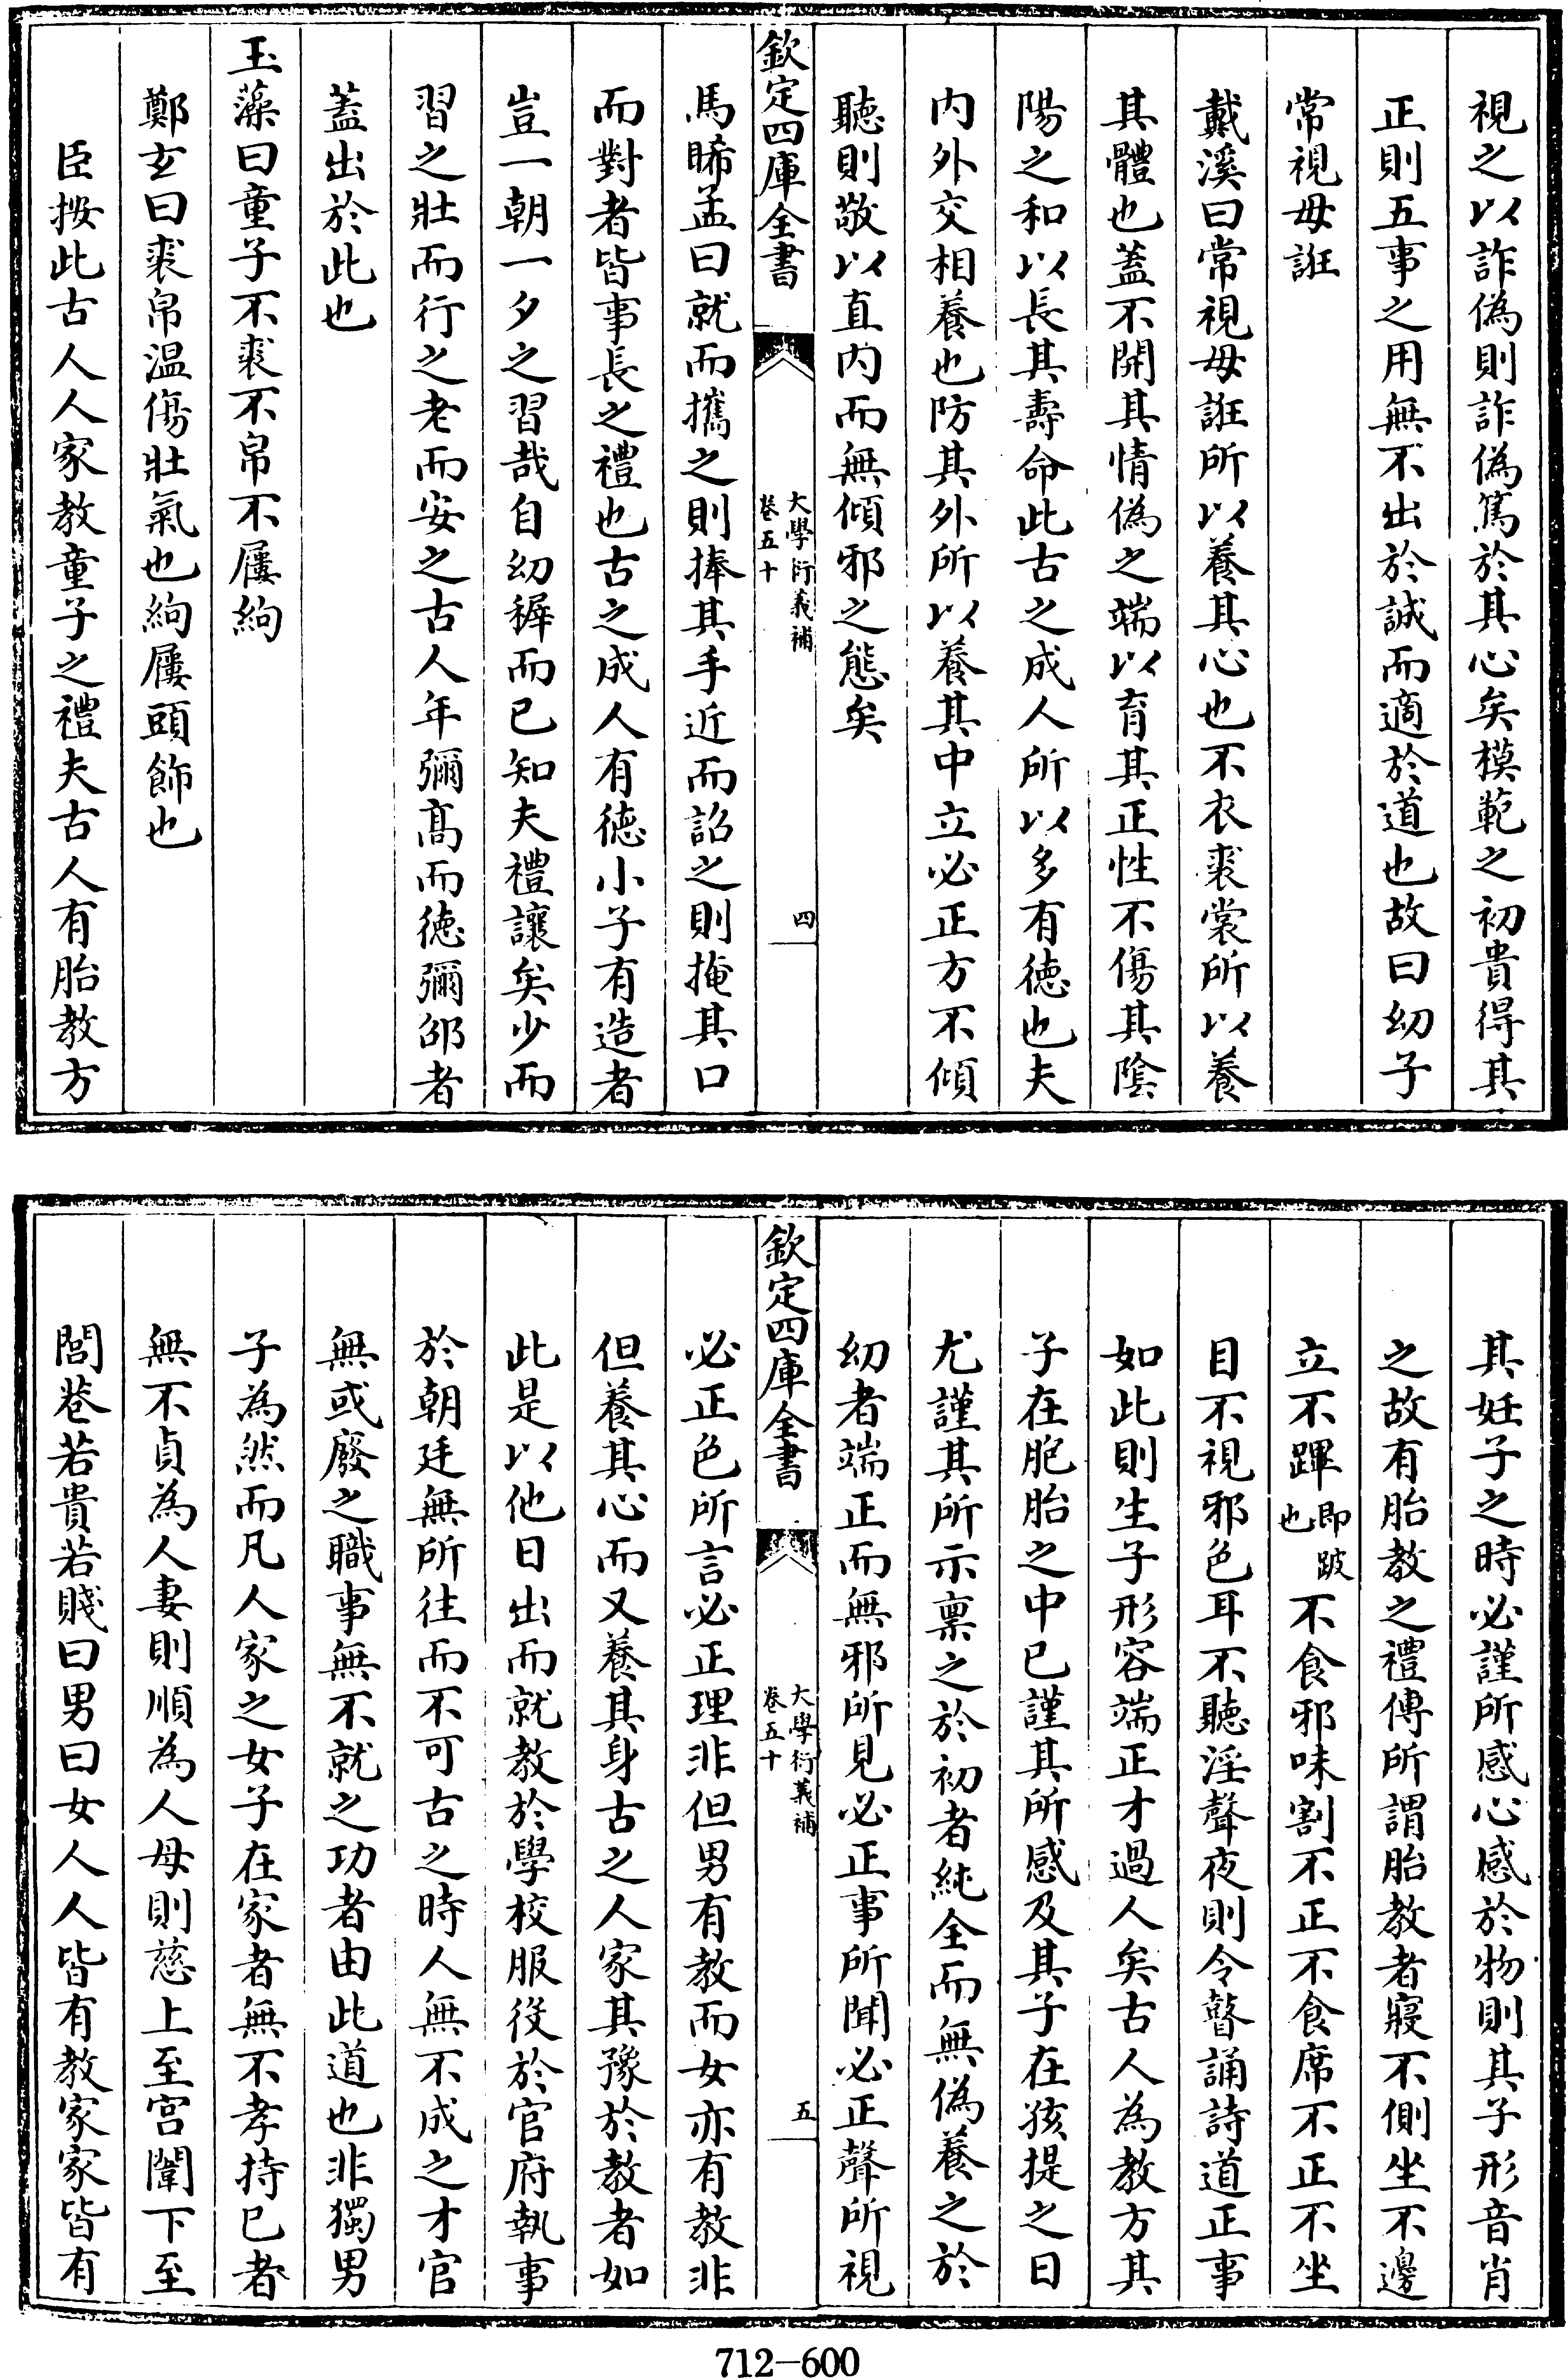 視之以詐偽則詐偽篤於其心矣模範之初貴得其
正則五事之用無不出於誠而適於道也故曰幼子
常視毋誑
戴溪曰常視毋誑所以養其心也不衣裘裳所以養
其體也蓋不開其情偽之端以育其正性不傷其陰
陽之和以長其壽命此古之成人所以多有徳也夫
内外交相養也防其外所以養其中立必正方不傾
聽則敬以直内而無傾邪之態矣
欽定四庫全書
大學衍義補
卷五十
四
馬睎孟曰就而攜之則捧其手近而詔之則掩其口
而對者皆事長之禮也古之成人有徳小子有造者
豈一朝一夕之習哉自幼穉而已知夫禮讓矣少而
習之壯而行之老而安之古人年彌髙而徳彌邵者
蓋出於此也
玉藻曰童子不裘不帛不屨絇
鄭玄曰裘帛温傷壯氣也絇屨頭飾也
臣按此古人人家教童子之禮夫古人有胎教方
其妊子之時必謹所感心感於物則其子形音肖
之故有胎教之禮傳所謂胎教者寢不側坐不邊
立不蹕即跛也不食邪味割不正不食席不正不坐
目不視邪色耳不聽淫聲夜則令瞽誦詩道正事
如此則生子形容端正才過人矣古人為教方其
子在胞胎之中已謹其所感及其子在孩提之日
尤謹其所示禀之於初者純全而無偽養之於
幼者端正而無邪所見必正事所聞必正聲所視
欽定四庫全書
大學衍義補
卷五十
五
必正色所言必正理非但男有教而女亦有教非
但養其心而又養其身古之人家其豫於教者如
此是以他日出而就教於學校服役於官府執事
於朝廷無所往而不可古之時人無不成之才官
無或廢之職事無不就之功者由此道也非獨男
子為然而凡人家之女子在家者無不孝持已者
無不貞為人妻則順為人母則慈上至宫闈下至
閭巷若貴若賤曰男曰女人人皆有教家家皆有
712-600